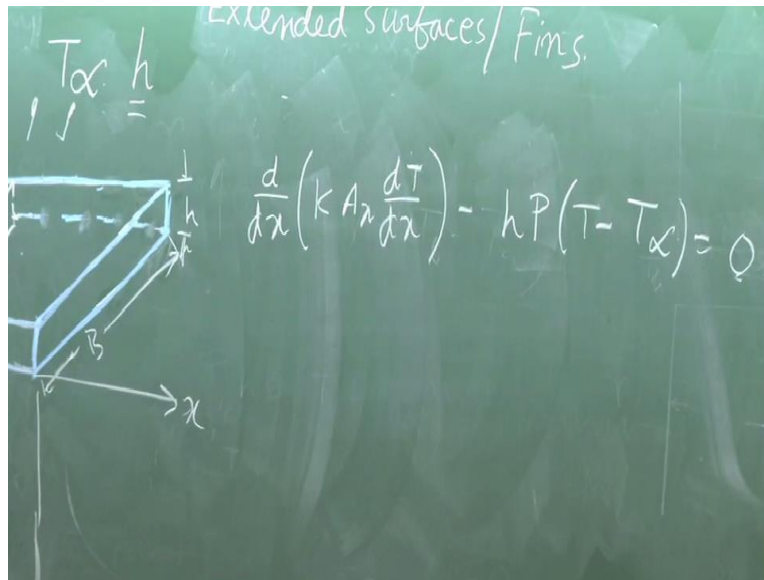 Extended surfaces/Fins.
Tα h
d/dx (K Aₓ dT/dx) - hP(T - Tα) = 0
h
B
x